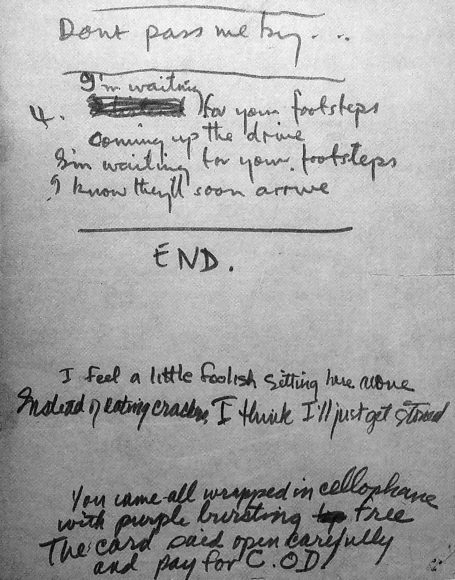 Dont pass me by...
I'm waiting
4. for your footsteps
coming up the drive
I'm waiting for your footsteps
I know they'll soon arrive
END.
I feel a little foolish sitting here alone
Instead of eating crackers I think I'll just get stoned
You came all wrapped in cellophane
with purple bursting free
The card said open carefully
and pay for C.OD